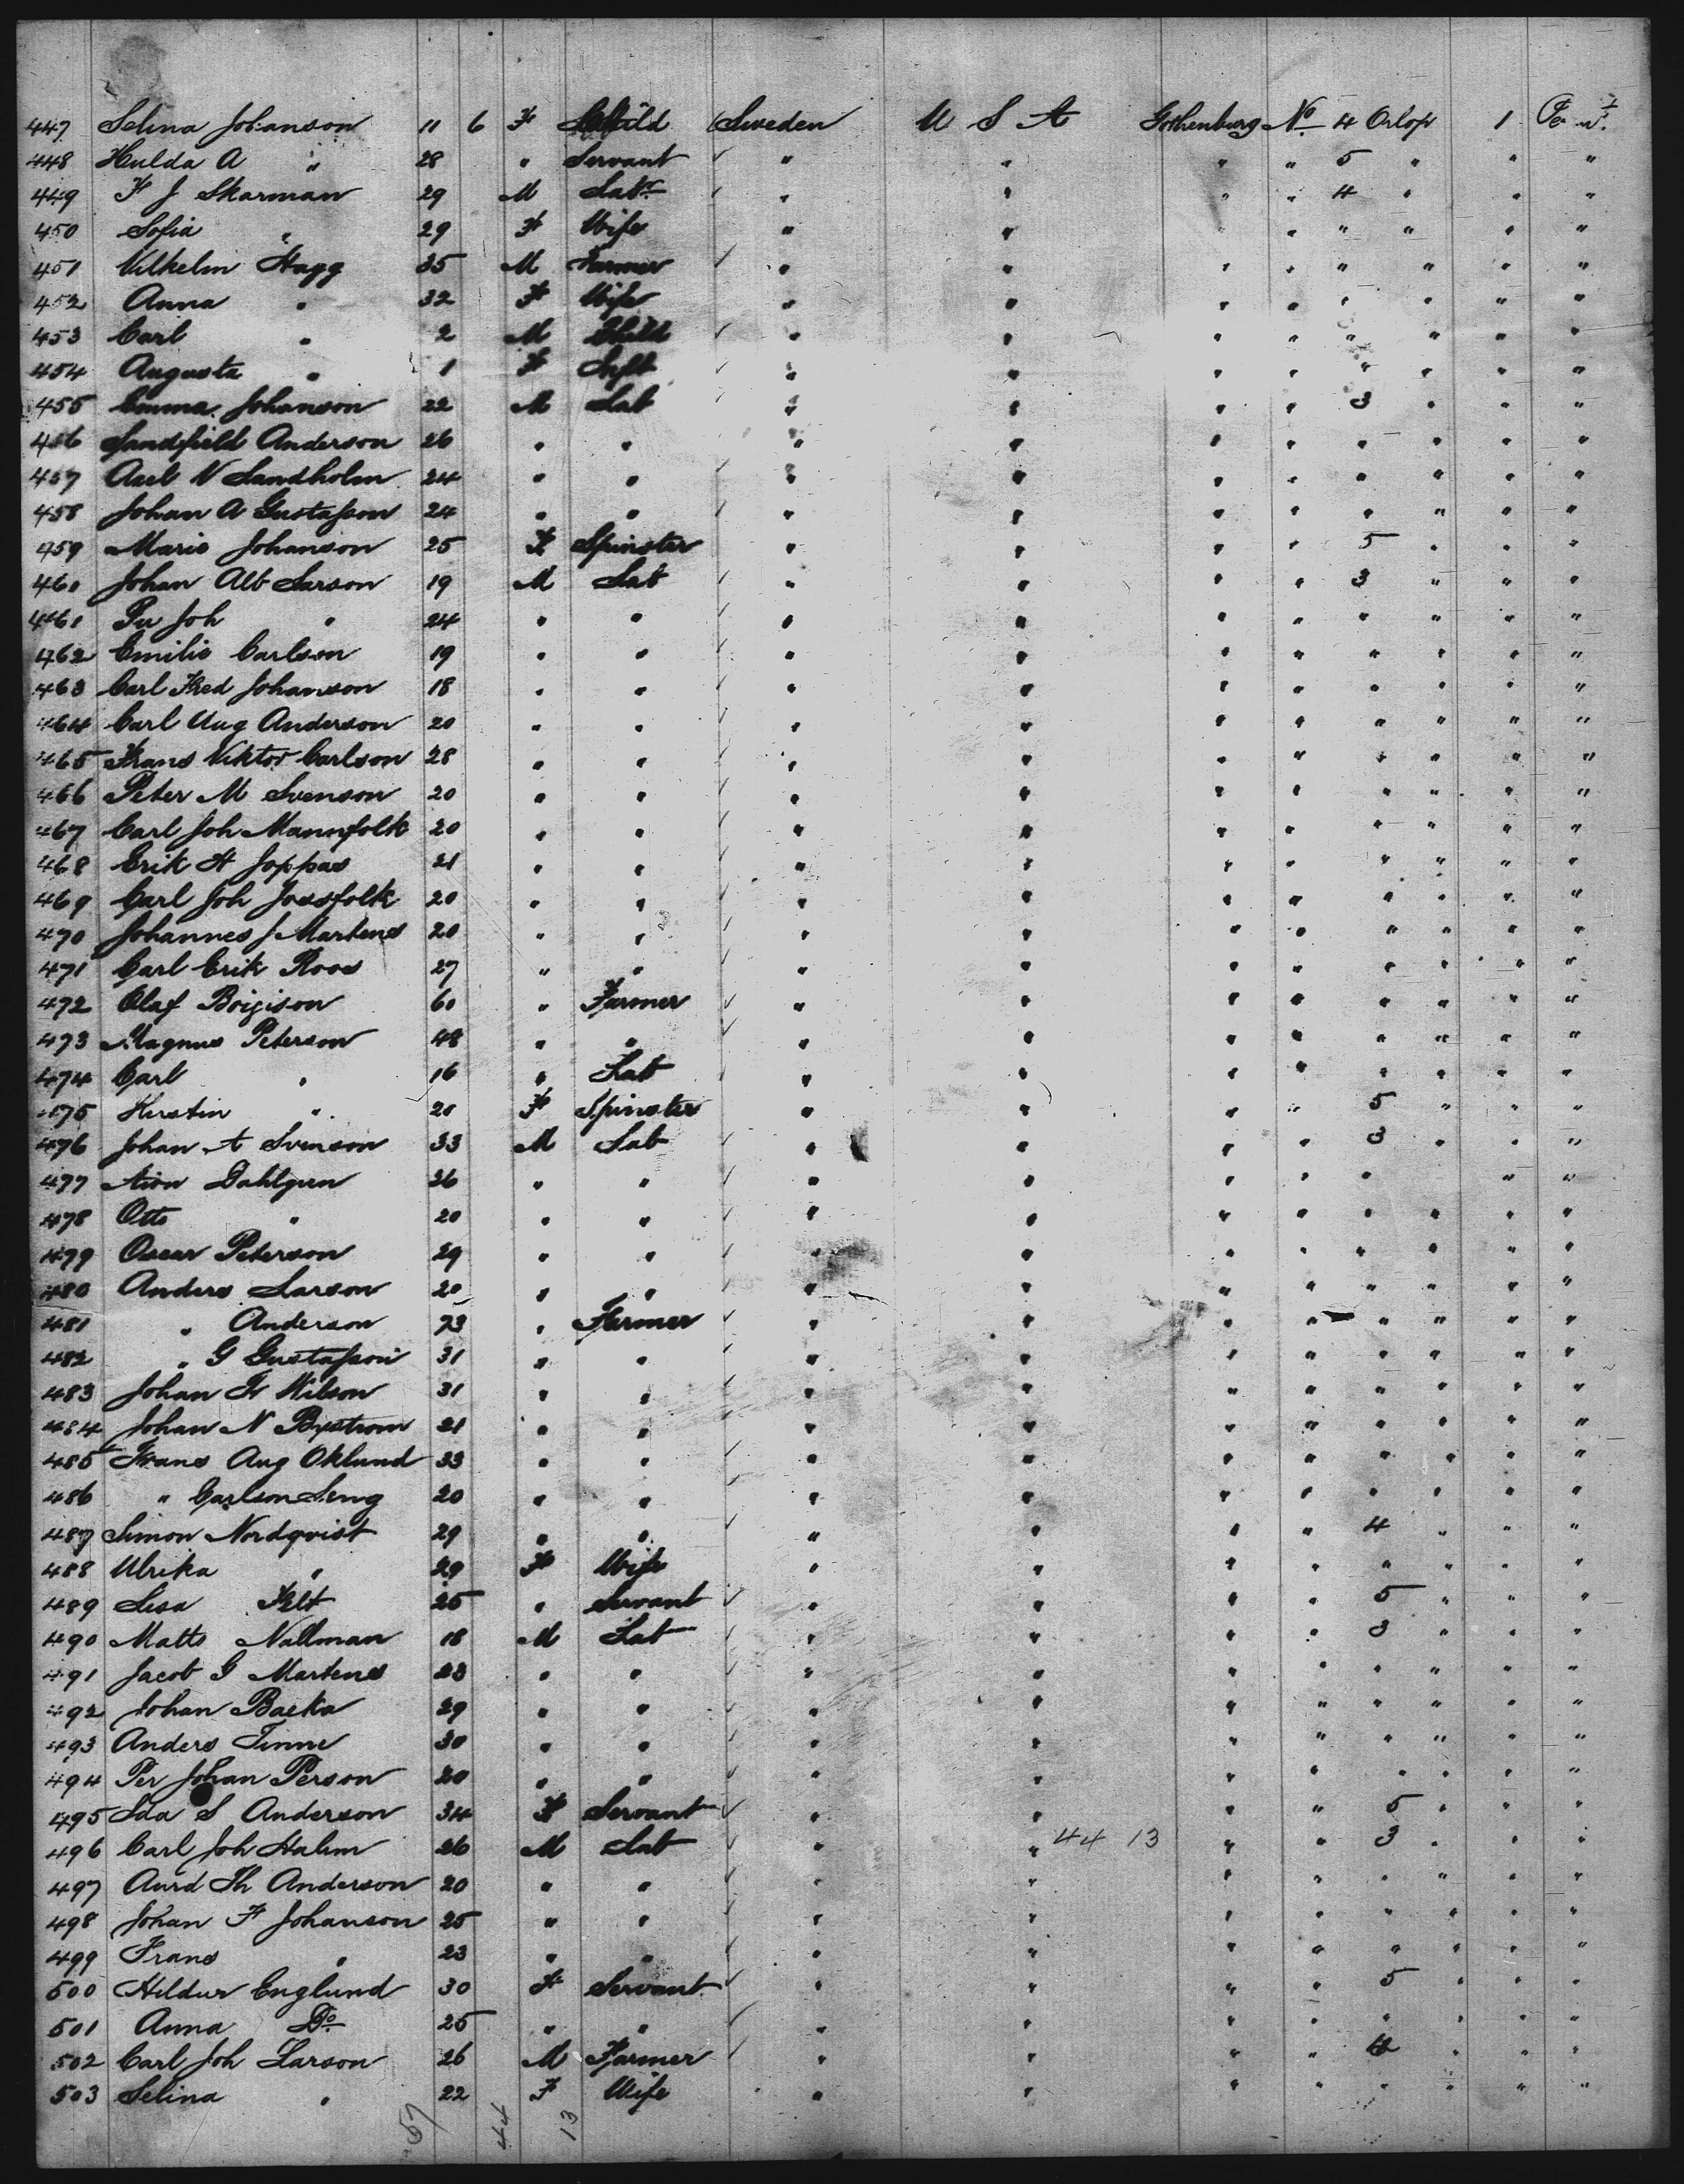 447 Selma Johanson 11 6 F Child Sweden U S A Gothenburg No 4 Orlop 1
448 Hulda A " 28 " Servant " " " " 5 " " "
449 F J Skarman 29 M Labr " " " " 4 " " "
450 Sofia " 29 F Wife " " " " " " "
451 Vilhelm Hagg 35 M Farmer " " " " " " " "
452 Anna " 32 F Wife " " " " " " " "
453 Carl " 2 M Child " " " " " " " "
454 Augusta " 1 F Inft " " " " " " " "
455 Emma Johanson 22 M Lab " " " " 3 " " "
456 Sandfield Anderson 26 " " " " " " " " " "
457 Axel V Sandholm 24 " " " " " " " " " "
458 Johan A Gustafson 24 " " " " " " " " " "
459 Marie Johanson 25 F Spinster " " " " 5 " " "
460 Johan Alb Larson 19 M Lab " " " " 3 " " "
461 Per Joh " 24 " " " " " " " " " "
462 Emilie Carlson 19 " " " " " " " " " "
463 Carl Fred Johanson 18 " " " " " " " " " "
464 Carl Aug Anderson 20 " " " " " " " " " "
465 Frans Viktor Carlson 28 " " " " " " " " " "
466 Peter M Svenson 20 " " " " " " " " " "
467 Carl Joh Mannfolk 20 " " " " " " " " " "
468 Erik H Joppas 21 " " " " " " " " " "
469 Carl Joh Jossfolk 20 " " " " " " " " " "
470 Johannes J Martens 20 " " " " " " " " " "
471 Carl Erik Roos 27 " " " " " " " " " "
472 Olaf Boigison 60 " Farmer " " " " " " " "
473 Magnus Peterson 48 " " " " " " " " " "
474 Carl " 16 " Lab " " " " " " " "
475 Kerstin " 20 F Spinster " " " " 5 " " "
476 Johan A Svenson 33 M Lab " " " " 3 " " "
477 Aron Dahlgren 26 " " " " " " " " "
478 Otto " 20 " " " " " " " " " "
479 Oscar Peterson 29 " " " " " " " " " "
480 Anders Larson 20 " " " " " " " " " "
481 " Anderson 73 " Farmer " " " " " " " "
482 " G Gustafson 31 " " " " " " " " " "
483 Johan Fr Nilson 31 " " " " " " " " " "
484 Johan N Bystrom 21 " " " " " " " " " "
485 Frans Aug Oklund 33 " " " " " " " " " "
486 " Carlson Leng 20 " " " " " " " " " "
487 Simon Nordqvist 29 " " " " " " 4 " " "
488 Ulrika " 29 F Wife " " " " " " " "
489 Lisa Felt 25 " Servant " " " " 5 " " "
490 Matts Nallman 18 M Lab " " " " 3 " " "
491 Jacob G Martens 23 " " " " " " " " " "
492 Johan Backa 29 " " " " " " " " " "
493 Anders Finne 30 " " " " " " " " " "
494 Per Johan Person 20 " " " " " " " " " "
495 Ida S Anderson 34 F Servant " " " " 5 " " "
496 Carl Joh Halm 26 M Lab " " 44 13 " " 3 " " "
497 Aurd Th Anderson 20 " " " " " " " " " "
498 Johan F Johanson 25 " " " " " " " " " "
499 Frans " 23 " " " " " " " " " "
500 Hildur Englund 30 F Servant " " " " 5 " " "
501 Anna Do 25 " " " " " " " " " "
502 Carl Joh Larson 26 M Farmer " " " " 4 " " "
503 Selina " 22 F Wife " " " " " " " "
57 44 13